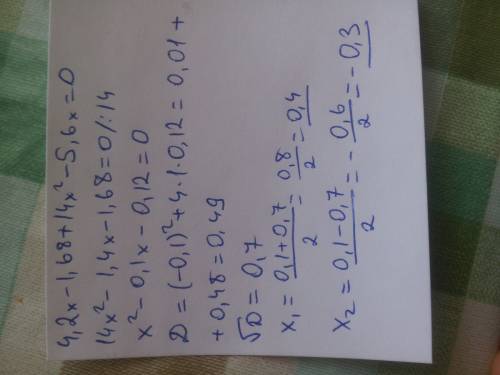 4,2x-1,68+14x²-5,6x=0
14x²-1,4x-1,68=0/:14
x²-0,1x-0,12=0
D=(-0,1)²+4·1·0,12=0,01+
+0,48=0,49
√D=0,7
x₁=(0,1+0,7)/2=0,8/2=0,4
x₂=(0,1-0,7)/2=-0,6/2=-0,3